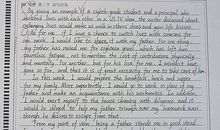 By giving an example of a eighth-grade student and a principal who
switched lives with each other in a US TV show, the writer discussed that
extraordinary lives would make us walk in others shoes and gain life lessons.
As for me, if I have a chance to switch lives with someone for
one week, I would like to share it with my father. For one thing,
my father has raised me for eighteen years, which has left him
fatigue, not to mention the cost of contributions physically
and mentally. For another, but for his love for me, I wouldn't have
gone so far, and thus it is of great necessity for me to take care of him.
In this week, I would prepare the breakfast, lunch and supper
for my family. More importantly, I would go to work in place of my
father and make an acquaintance with his workmates. In addition,
I would exert myself to the house cleaning with diligence and it
would be obliged to help my father through over my homework even
though he desires to escape from that.
From my point of view, being a father stands me in good stead